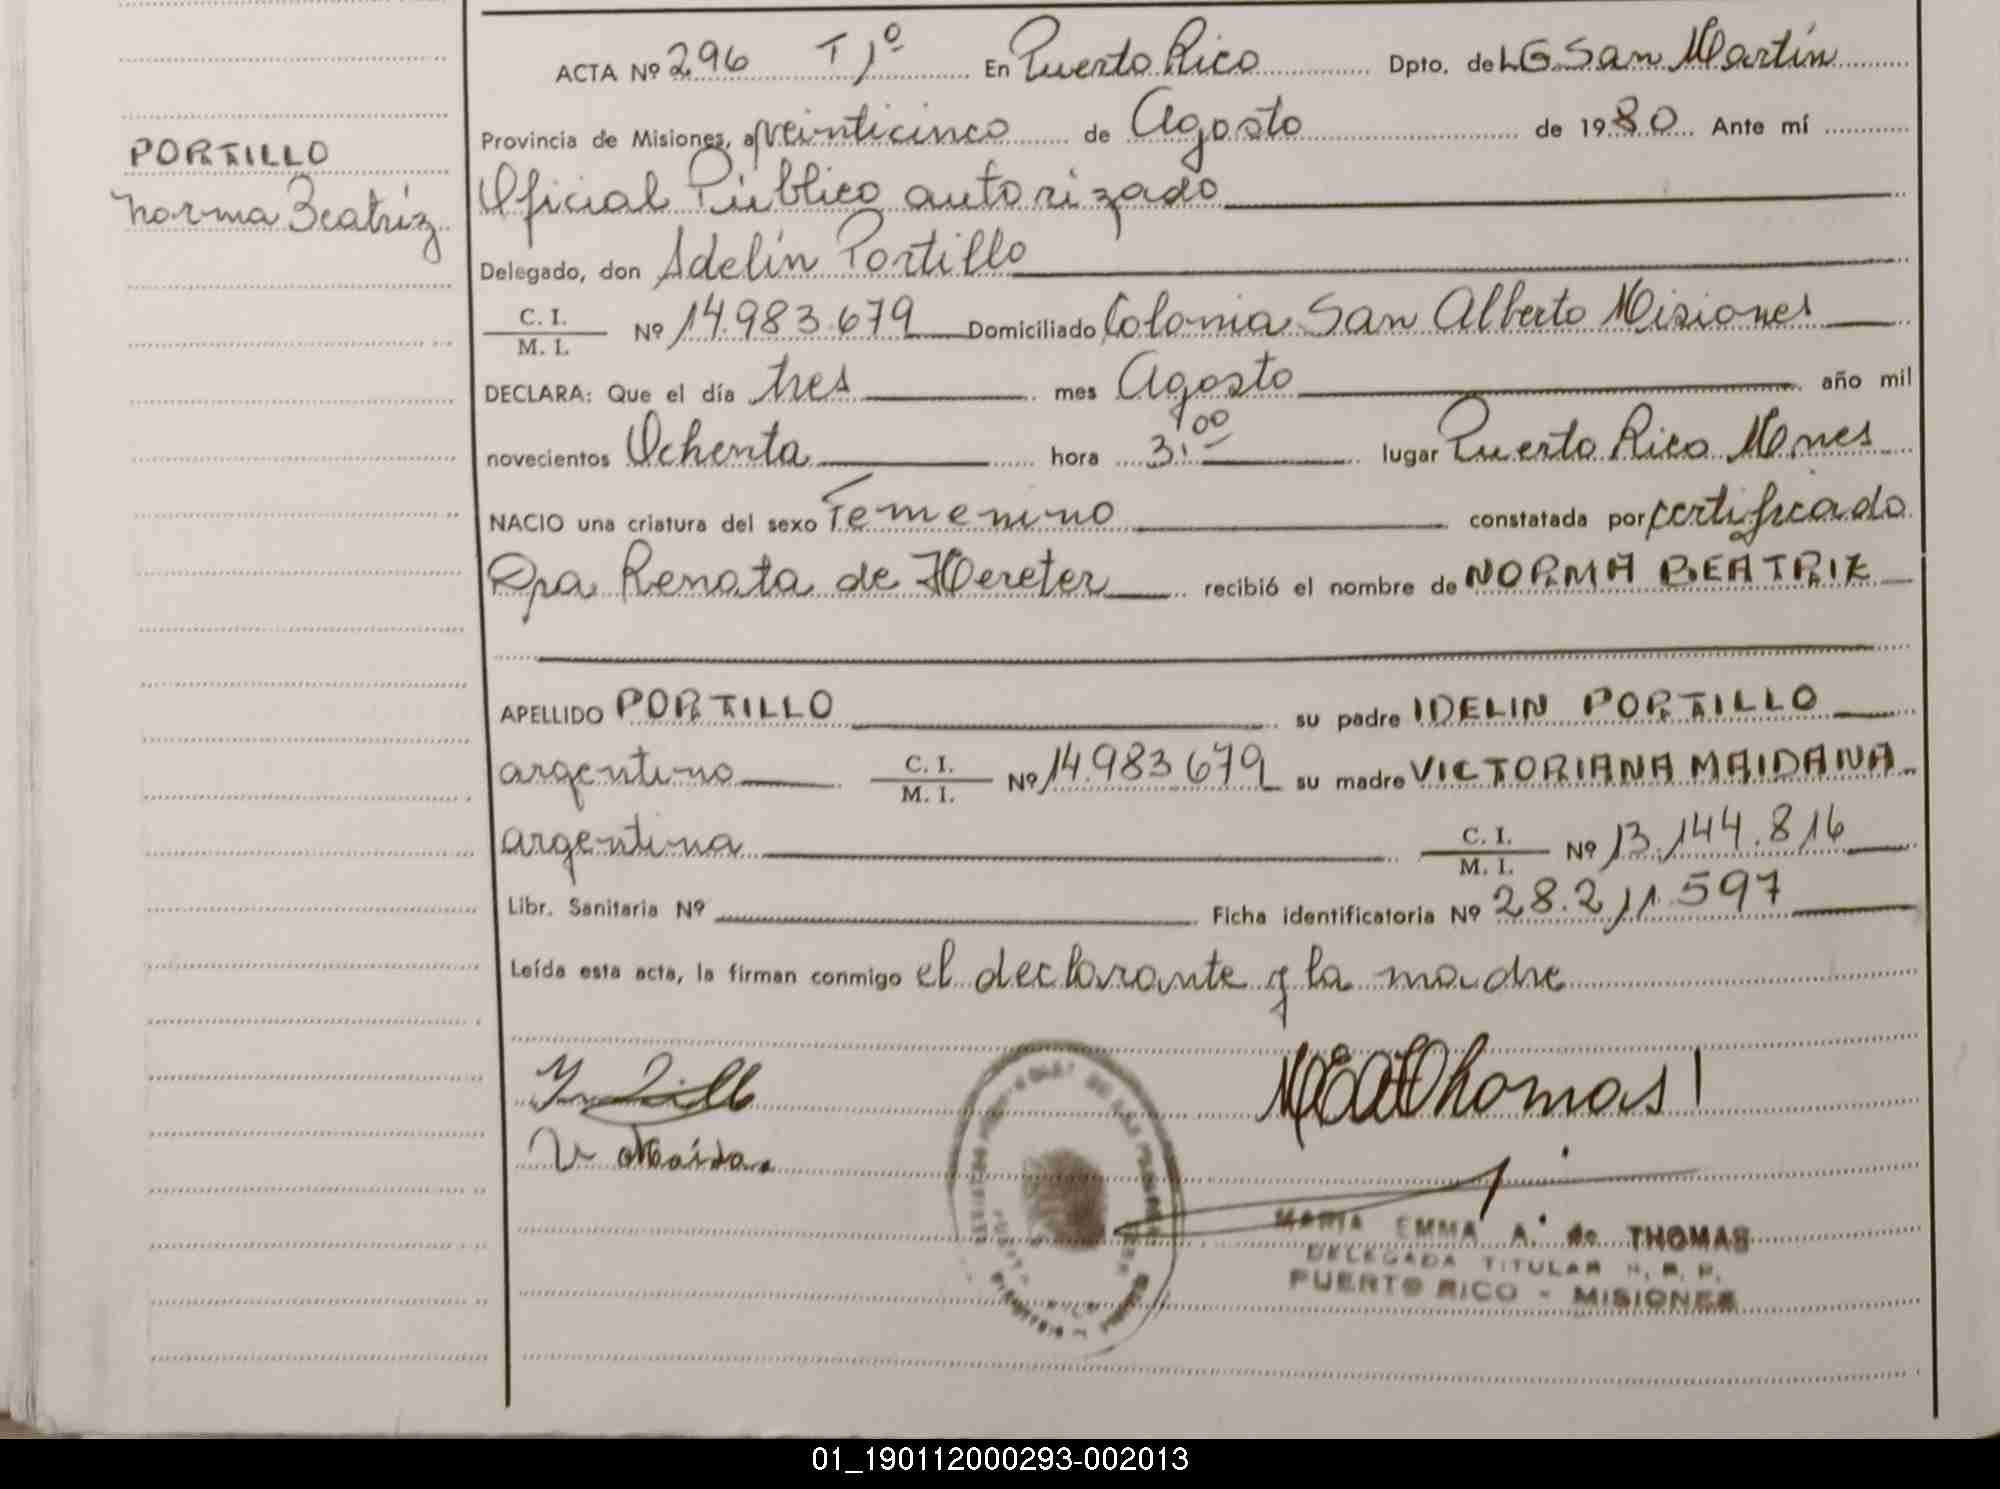 ACTA Nº 296 T 1º En Puerto Rico Dpto. de LG San Martín
PORTILLO
Norma Beatríz
Provincia de Misiones, a veinticinco de Agosto de 1980 Ante mí
Oficial Público autorizado
Delegado, don Adelín Portillo
C. I.
M. I. Nº 14.983.679 Domiciliado Colonia San Alberto Misiones
DECLARA: Que el día tres mes Agosto año mil
novecientos Ochenta hora 3.00 lugar Puerto Rico Mnes
NACIO una criatura del sexo Femenino constatada por certificado
Dra Renata de Hereter recibió el nombre de NORMA BEATRIZ
APELLIDO PORTILLO su padre IDELIN PORTILLO
argentino C. I.
M. I. Nº 14.983.679 su madre VICTORIANA MAIDANA
argentina C. I.
M. I. Nº 13.144.816
Libr. Sanitaria Nº Ficha identificatoria Nº 28.211.597
Leída esta acta, la firman conmigo el declarante y la madre
Thomas
V Maida
MARIA EMMA A. de THOMAS
DELEGADA TITULAR
PUERTO RICO - MISIONES
01_190112000293-002013